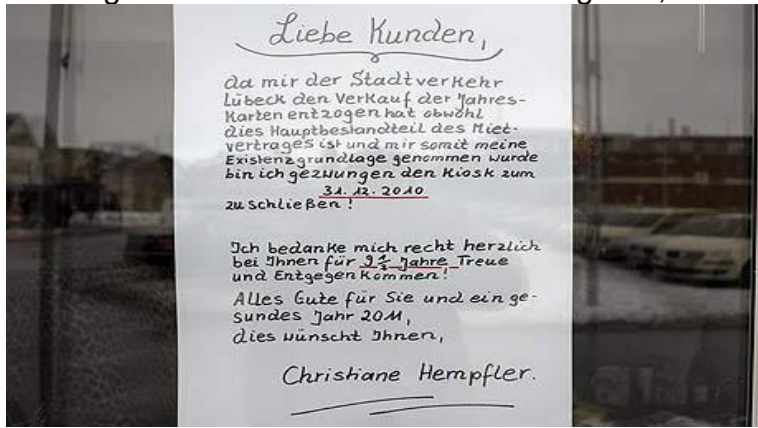 Liebe Kunden,
da mir der Stadtverkehr
Lübeck den Verkauf der Jahres-
Karten entzogen hat obwohl
dies Hauptbestandteil des Miet-
vertrages ist und mir somit meine
Existenzgrundlage genommen wurde
bin ich gezwungen den Kiosk zum
31.12.2010
zu schließen!
Ich bedanke mich recht herzlich
bei Ihnen für 9½ Jahre Treue
und Entgegenkommen!
Alles Gute für Sie und ein ge-
sundes Jahr 2011,
dies wünscht Ihnen,
Christiane Hempfler.